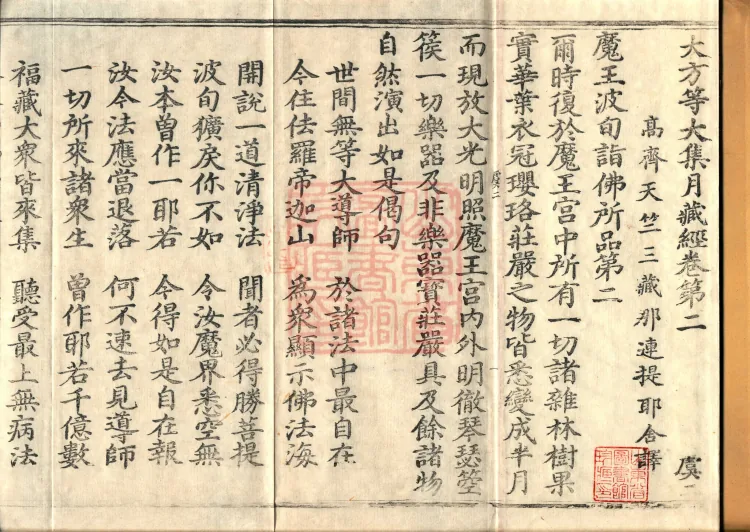 大方等大集月藏經卷第二 虞二
高齊天竺三藏那連提耶舍譯
魔王波旬詣佛所品第二
爾時復於魔王宮中所有一切諸雜林樹果
實華葉衣冠瓔珞莊嚴之物皆悉變成半月
而現放大光明照魔王宮內外明徹琴瑟箜
篌一切樂器及非樂器寶莊嚴具及餘諸物
自然演出如是偈句
世間無等大導師 於諸法中最自在
今住佉羅帝迦山 為衆顯示佛法海
開說一道清淨法 聞者必得勝菩提
波旬獷戾你不如 令汝魔界悉空無
汝本曾作一耶若 今得如是自在報
汝今法應當退落 何不速去見導師
一切所來諸衆生 曾作耶若千億數
福藏大衆皆來集 聽受最上無病法